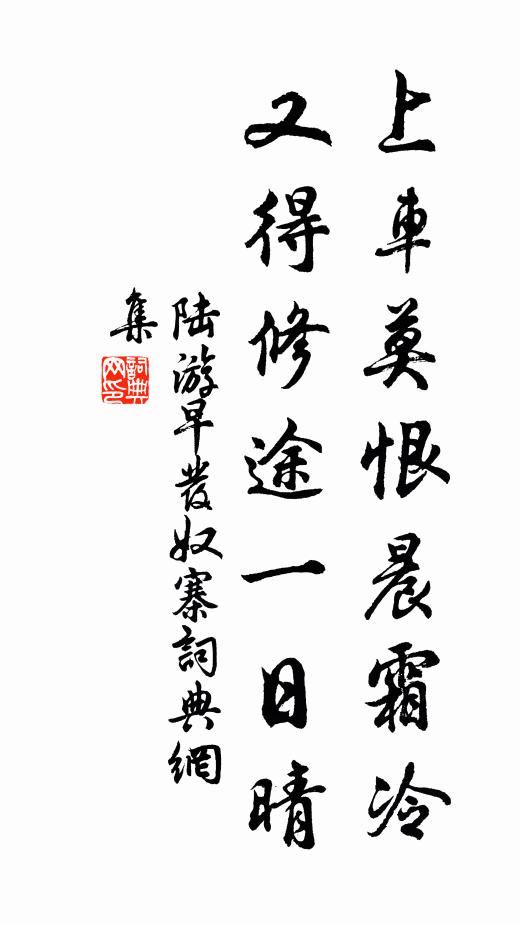 上車莫恨晨霜冷
又得修途一日晴
陆游早發奴寨詞典網
集
詞典
网印